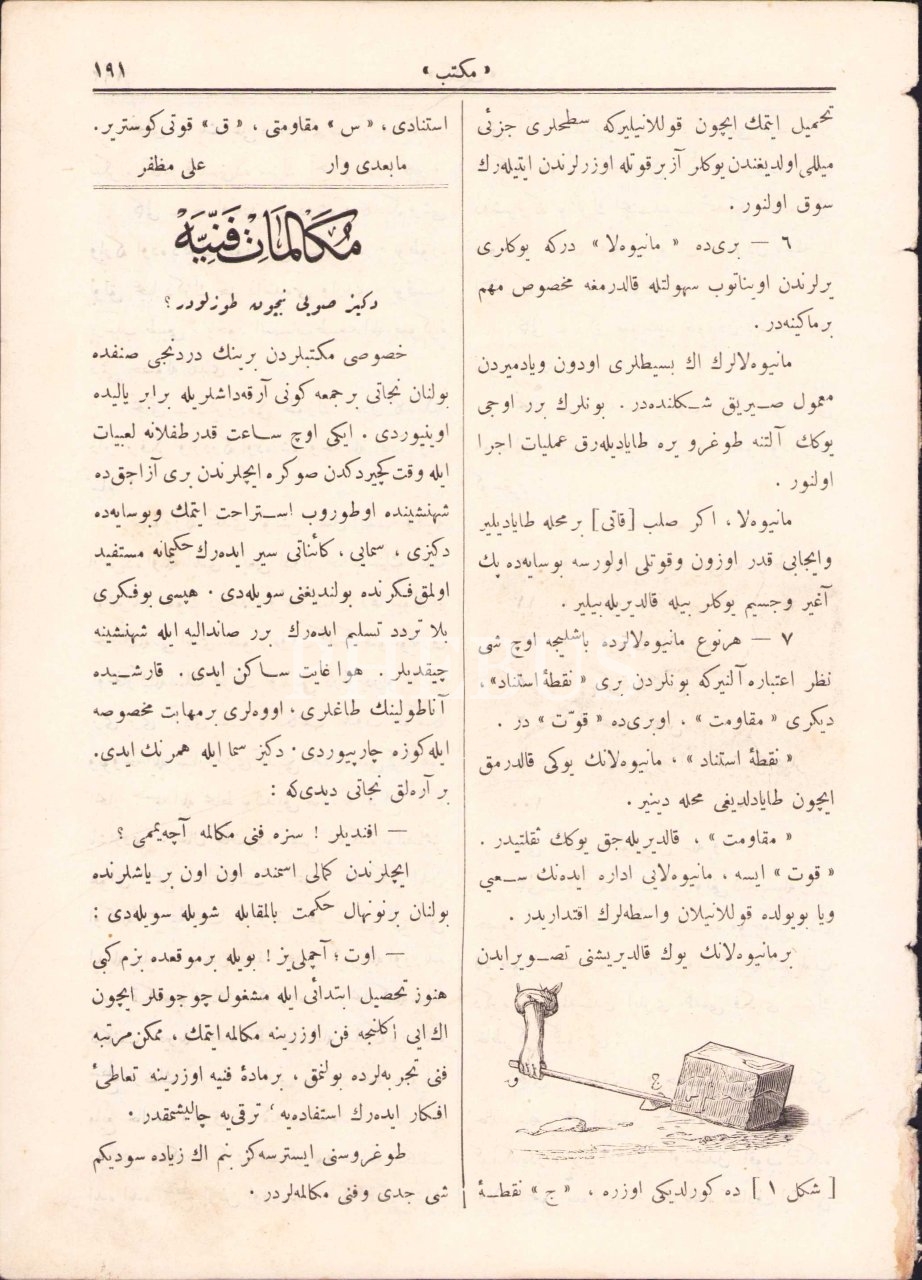 « مكتب »
١٩١
تحميل ايتمك ايچون قوللانيليركه سطحلرى جزئى
ميللى اولديغندن يوكلر آز برقوتله اوزرلرندن ايتيله‌رك
سوق اولنور .
٦ — برى‌ده « مانيوه‌لا » دركه يوكلرى
يرلرندن اويناتوب سهولتله قالدرمغه مخصوص مهم
برماكينه‌در .
مانيوه‌لالرك اك بسيطلرى اودون ويادميردن
معمول صيريق شكلنده‌در . بونلرك برر اوجى
يوكك آلتنه طوغرو يره طايادیله‌رق عمليات اجرا
اولنور .
مانيوه‌لا ، اكر صلب [قاتى] برمحله طاياديلير
وايجابى قدر اوزون وقوتلى اولورسه بوسايه‌ده پك
آغير وجسيم يوكلر بيله قالديريله‌بيلير .
٧ — هرنوع مانيوه‌لالرده باشليجه اوچ شى
نظر اعتباره آلنيركه بونلردن برى « نقطهٔ استناد » ،
ديكرى « مقاومت » ، اوبرى‌ده « قوّت » در .
« نقطهٔ استناد » ، مانيوه‌لانك يوكى قالدرمق
ايچون طايادلديغى محله دينير .
« مقاومت » ، قالديريله‌جق يوكك ثقلتيدر .
« قوت » ايسه ، مانيوه‌لايى اداره ايده‌نك سعيى
ويا بويولده قوللانيلان واسطه‌لرك اقتداريدر .
برمانيوه‌لانك يوك قالديريشنى تصويرايدن
ج
و
[ شكل ١ ] ده كورلديكى اوزره ، « ج » نقطهٔ
استنادى ، « س » مقاومتى ، « ق » قوتى كوسترير .
مابعدى وار
على مظفر
مُكَالَمَاتِ فَنِّيَه
دكيز صويى نيچون طوزلودر ؟
خصوصى مكتبلردن برينك دردنجى صنفده
بولنان نجاتى برجمعه كونى آرقه‌داشلريله برابر ياليده
اوينيوردى . ايكى اوچ ساعت قدر طفلانه لعبيات
ايله وقت كچيردكدن صوكره ايچلرندن برى آزاجق‌ده
شهنشينده اوطوروب استراحت ايتمك وبوسايه‌ده
دكيزى ، سمايى ، كائناتى سير ايده‌رك حكيمانه مستفيد
اولمق فكرنده بولنديغنى سويله‌دى . هپسى بوفكرى
بلا تردد تسليم ايده‌رك برر صانداليه ايله شهنشينه
چيقديلر . هوا غايت ساكن ايدى . قارشيده
آناطولينك طاغلرى ، اووه‌لرى برمهابت مخصوصه
ايله كوزه چارپيوردى . دكيز سما ايله همرنك ايدى .
بر آره‌لق نجاتى ديدى‌كه :
— افنديلر ! سزه فنى مكالمه آچه‌يممى ؟
ايچلرندن كمالى اسمنده اون اون بر ياشلرنده
بولنان برنونهال حكمت بالمقابله شويله سويله‌دى :
— اوت ؛ آچملى‌يز ! بويله برموقعده بزم كبى
هنوز تحصيل ابتدائى ايله مشغول چوجوقلر ايچون
اك ايى اكلنجه فن اوزرينه مكالمه ايتمك ، ممكن مرتبه
فنى تجربه‌لرده بولنمق ، برمادهٔ فنيه اوزرينه تعاطئ
افكار ايده‌رك استفاده‌يه ، ترقى‌يه چاليشمقدر .
طوغروسنى ايسترسه‌كز بنم اك زياده سوديكم
شى جدى وفنى مكالمه‌لردر .